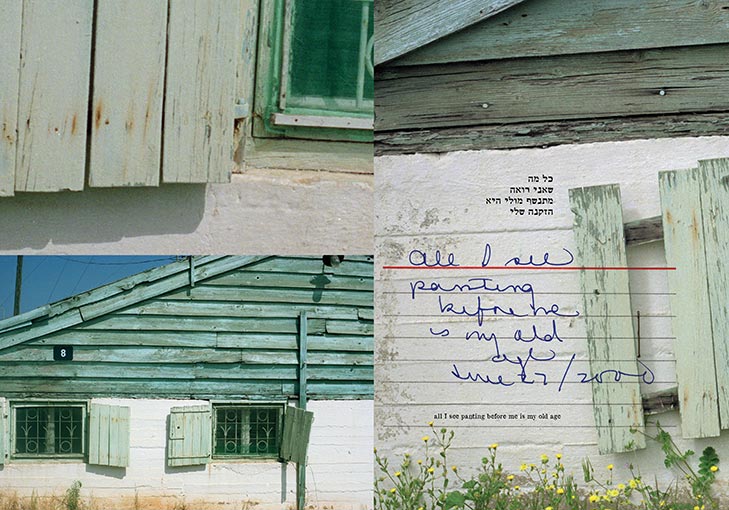 8
כל מה
שאני רואה
מתנשף מולי היא
הזקנה שלי
All I see
panting
before me
is my old
age
June 27/2000
all I see panting before me is my old age